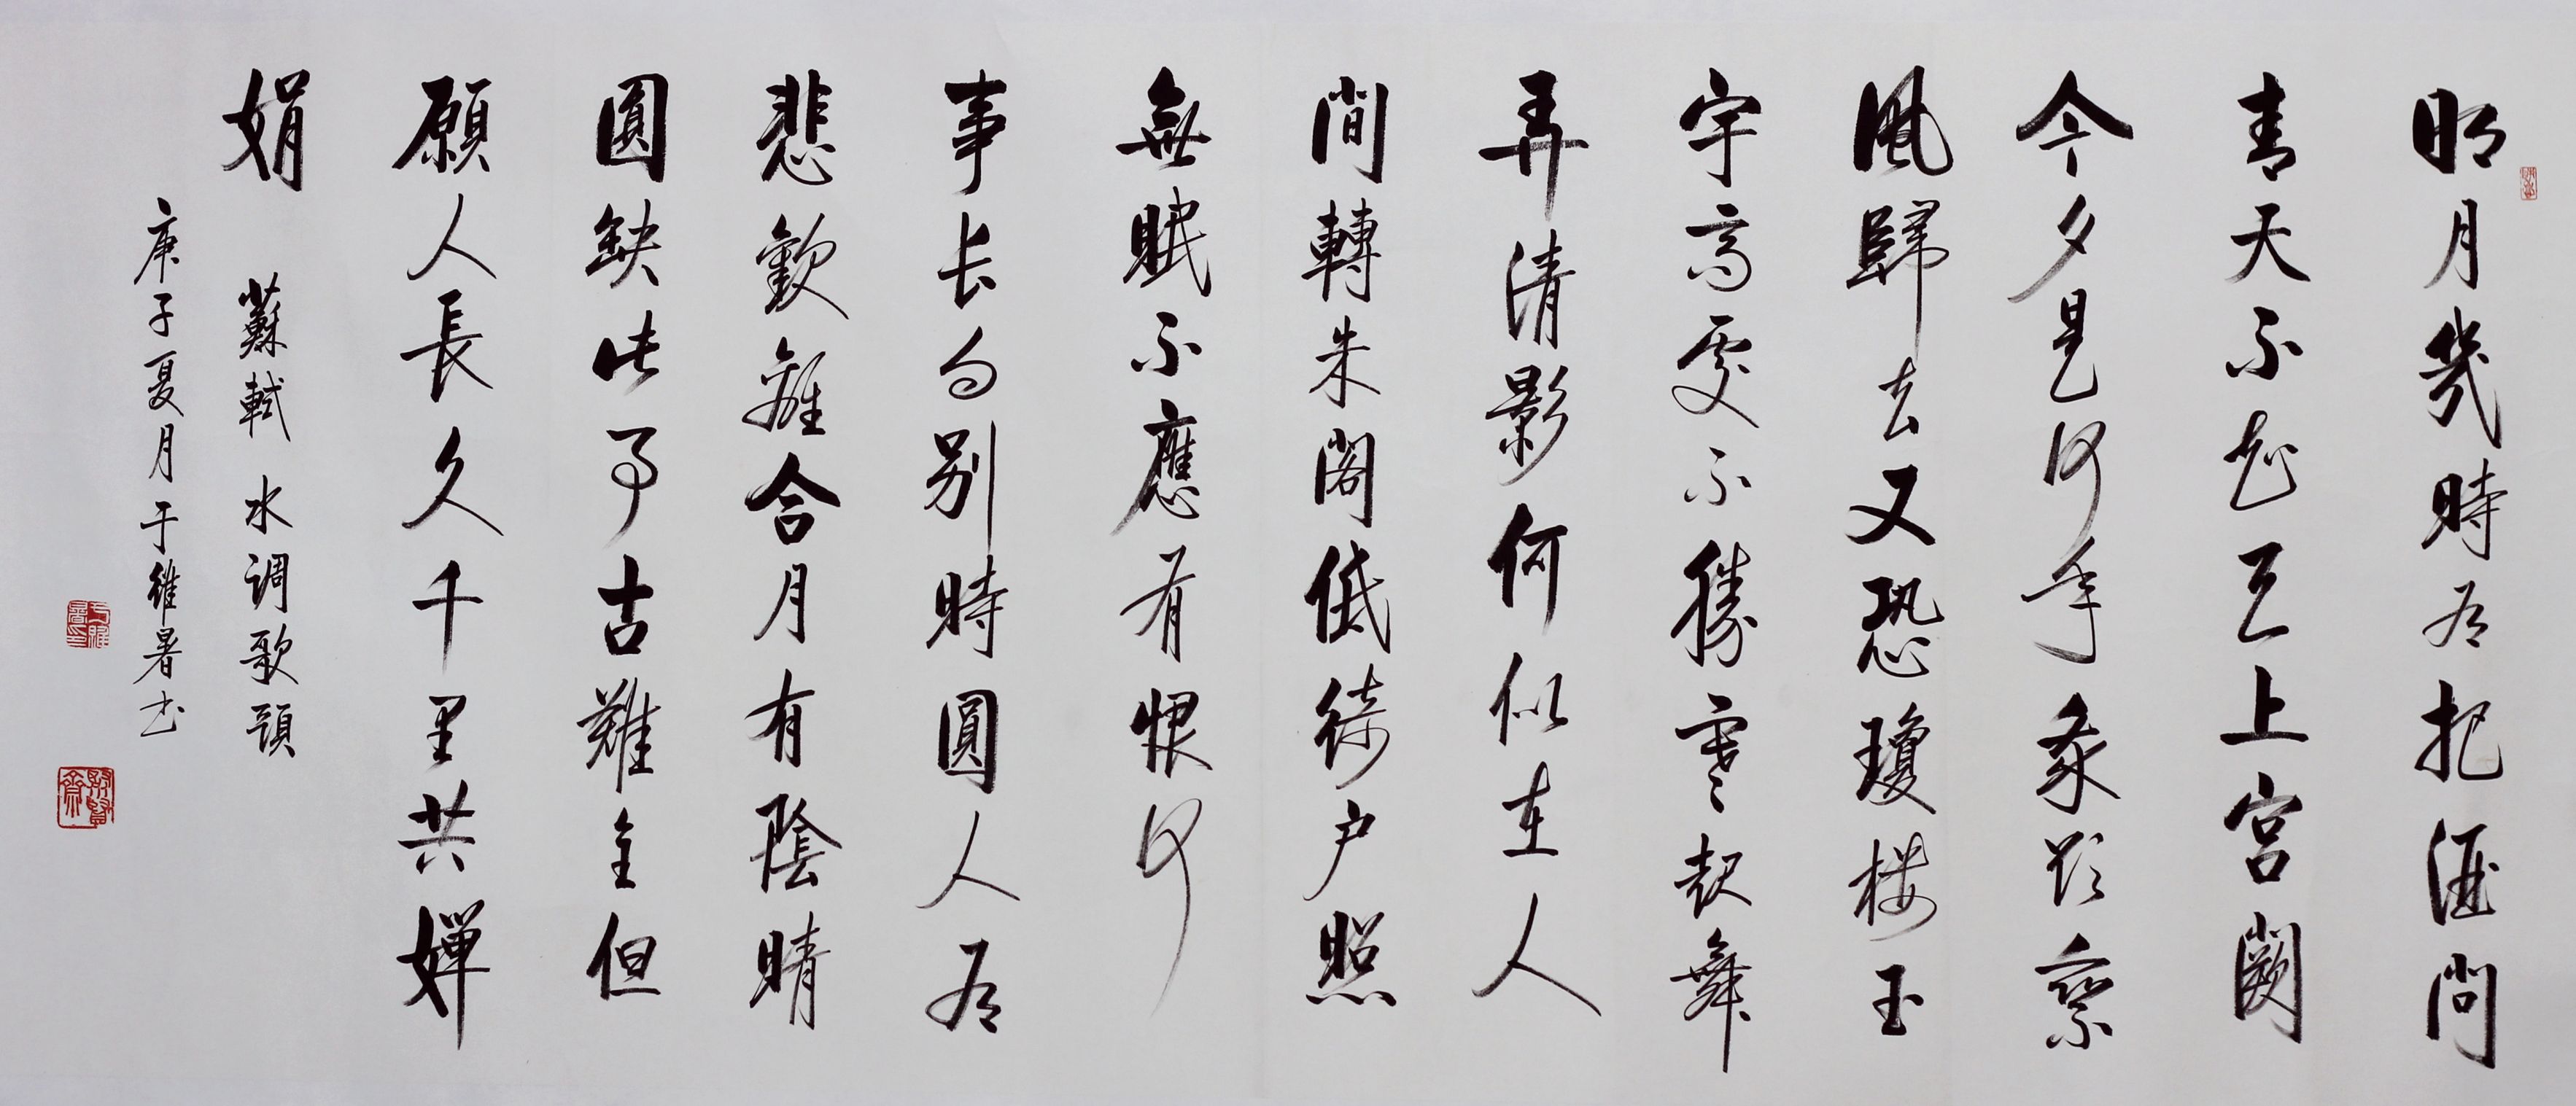 明月幾時有把酒問
青天不知天上宮闕
今夕是何年我欲乘
風歸去又恐瓊楼玉
宇高處不勝寒起舞
弄清影何似在人
間轉朱閣低綺户照
無眠不應有恨何
事长向别時圓人有
悲歡離合月有陰晴
圓缺此事古難全但
願人長久千里共嬋
娟 蘇軾 水调歌頭
庚子夏月于維暑书